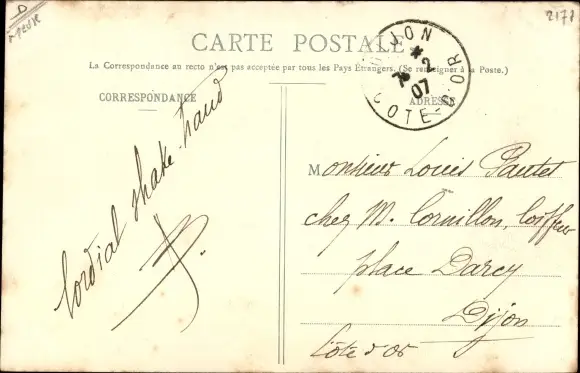 2177
CARTE POSTALE
La Correspondance au recto n'est pas acceptée par tous les Pays Étrangers. (Se renseigner à la Poste.)
CORRESPONDANCE
ADRESSE
DIJON
7 2
07
COTE-D'OR
Cordial shake-hand
Monsieur Louis Pautet
chez M. Cornillon, Coiffeur
place Darcy
Dijon
Côte d'Or